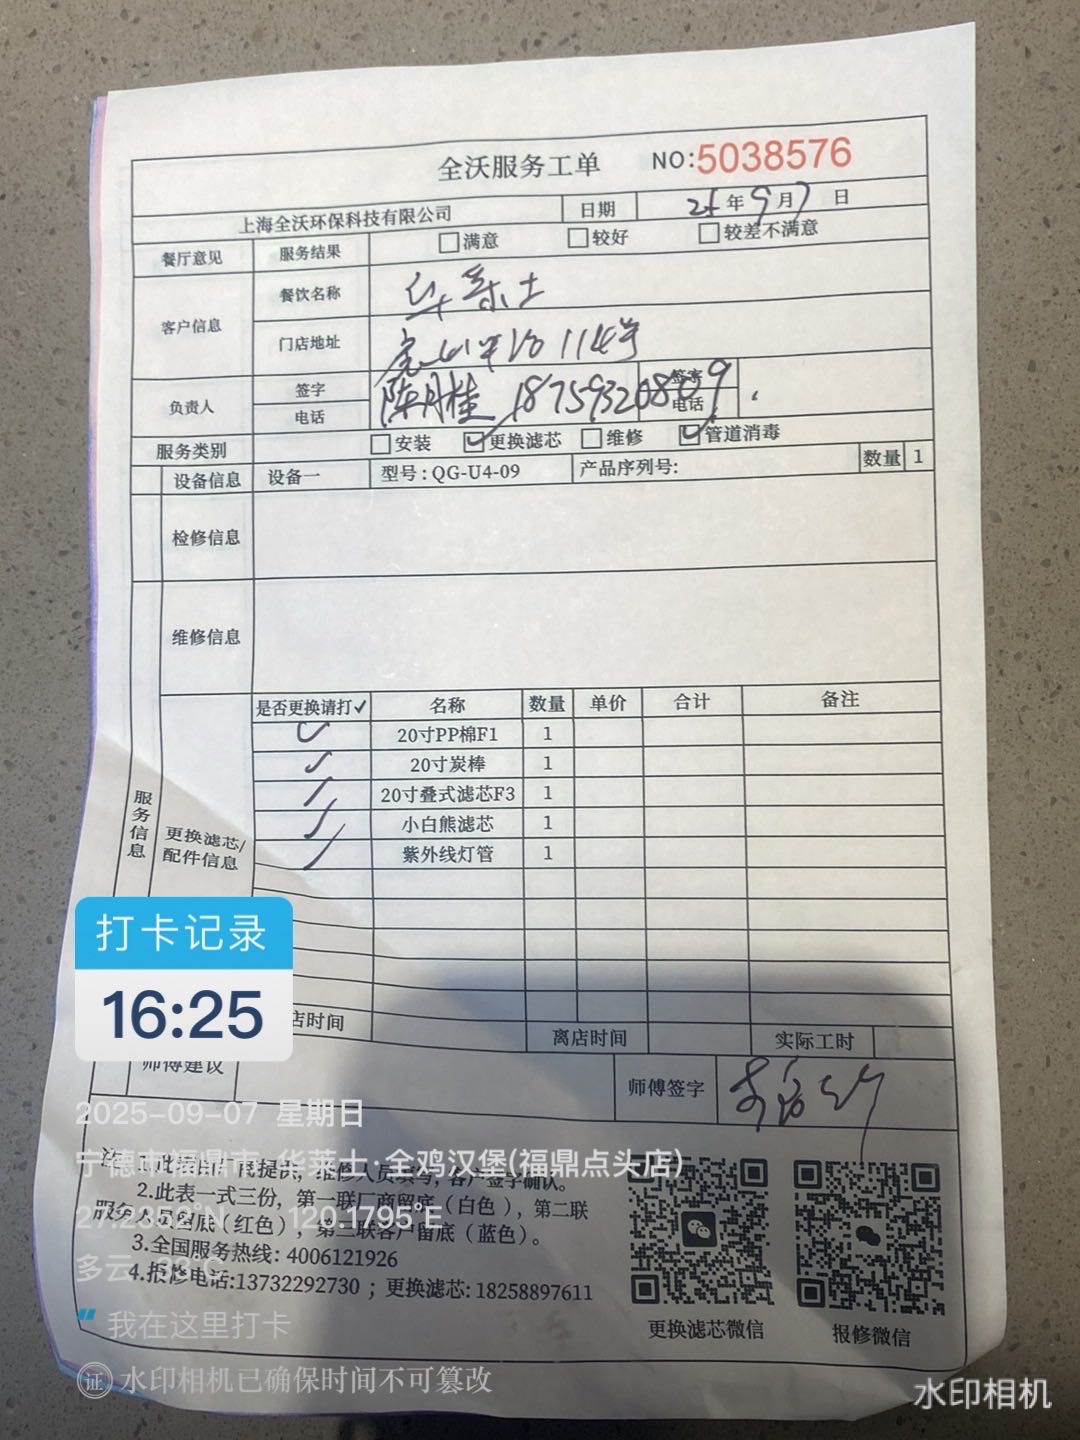 全沃服务工单 NO:5038576
上海全沃环保科技有限公司 日期 25年9月7日
餐厅意见 服务结果 满意 较好 较差不满意
客户信息 餐饮名称 华莱士
门店地址 114号
负责人 签字 陈月桂 签字
电话 18759320809 电话
服务类别 安装 更换滤芯 维修 管道消毒
设备信息 设备一 型号:QG-U4-09 产品序列号: 数量 1
检修信息
维修信息
服务信息
更换滤芯/
配件信息
是否更换请打✓ 名称 数量 单价 合计 备注
✓ 20寸PP棉F1 1
✓ 20寸炭棒 1
✓ 20寸叠式滤芯F3 1
✓ 小白熊滤芯 1
✓ 紫外线灯管 1
店时间 离店时间 实际工时
师傅建议 师傅签字
打卡记录
16:25
2025-09-07 星期日
宁德市福鼎市·华莱士·全鸡汉堡(福鼎点头店)
120.1795°E
多云
我在这里打卡
2.此表一式三份，第一联厂商留底（白色），第二联
服务人员留底（红色），第三联客户留底（蓝色）。
3.全国服务热线: 4006121926
4.报修电话:13732292730 ；更换滤芯: 18258897611
更换滤芯微信
报修微信
证 水印相机已确保时间不可篡改
水印相机